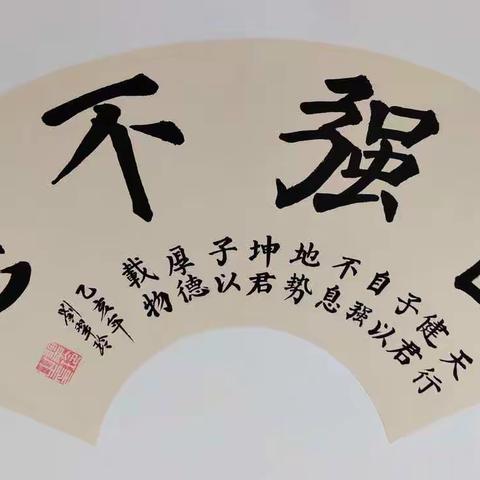 强不
天行
健君
子以
自强
不息
地势
坤君
子以
厚德
載物
乙亥年
劉